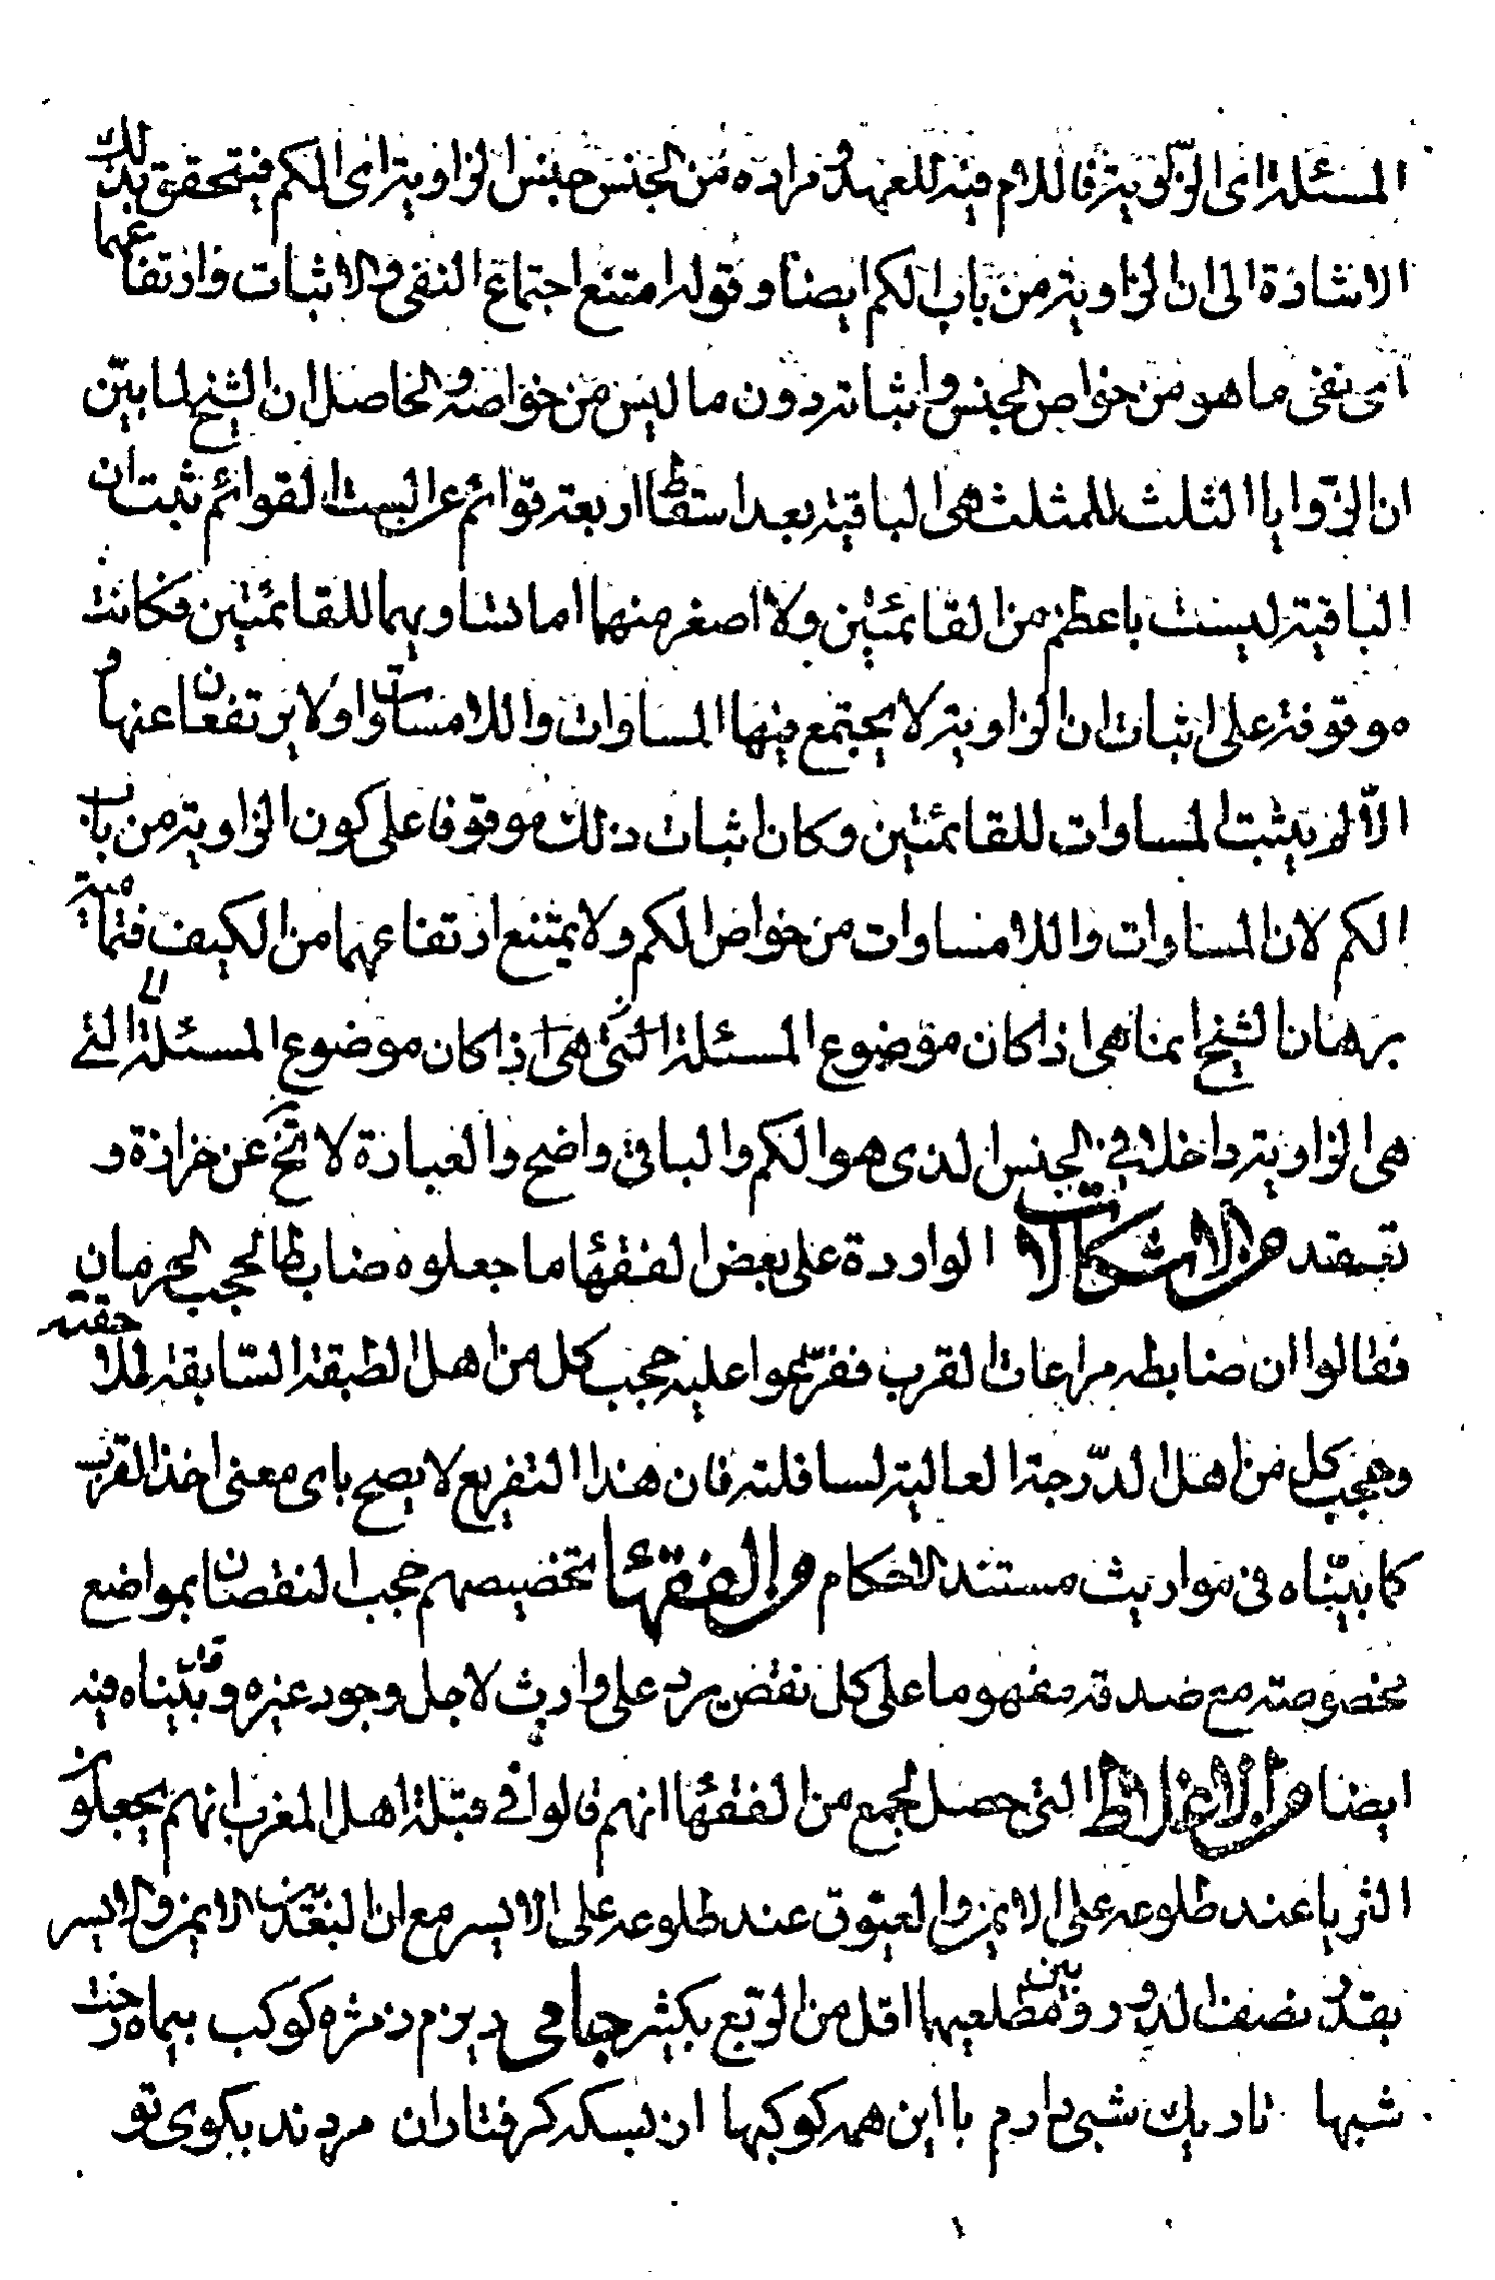 المسئلة اى الزّاوية فاللام فيه للعهد و مراده من الجنس جنس الزاوية اى الكم فيتحقق بذلك
الاشارة الى ان الزاوية من باب الكم ايضا وقوله امتنع اجتماع النفى والاثبات وارتفاعهما
اى نفى ما هو من خواص الجنس واثباته دون ما ليس من خواصه والحاصل ان الشيخ لما بيّن
ان الزّوايا الثلث للمثلث هى الباقية بعد اسقاط اربعة قوائم عن الست القوائم ثبت ان
الباقية ليست باعظم من القائمتين ولا اصغر منهما اما تساويهما للقائمتين فكانت
موقوفة على اثبات ان الزاوية لا يجتمع فيها المساوات واللامساوات ولا يرتفعان عنها و
الّا لم يثبت المساوات للقائمتين وكان اثبات ذلك موقوفا على كون الزاوية من باب
الكم لان المساوات واللامساوات من خواص الكم ولا يمتنع ارتفاعهما من الكيف فتمامية
برهان الشيخ انما هى اذا كان موضوع المسئلة التى هى اذا كان موضوع المسئلة التى
هى الزاوية داخلا فى الجنس الذى هو الكم والباقى واضح والعبارة لا تخ عن حزازة و
تعقيد من الاشكالات الواردة على بعض الفقهاء ما جعلوه ضابطا لحجب الحرمان
فقالوا ان ضابطه مراعات القرب ففرّعوا عليه حجب كل من اهل الطبقة السّابقة للاحقته
وحجب كل من اهل الدّرجة العالية لسافلته فان هذا التفريع لا يصح باى معنى اخذ القرب
كما بيّنّاه فى مواريث مستند الاحكام و الفقهاء تخصيصهم حجب النقصان بمواضع
مخصوصة مع صدقه مفهوما على كل نقص يرد على وارث لاجل وجود غيره وقد بيّناه فيه
ايضا من الاغلاط التى حصل لجمع من الفقهاء انهم قالوا فى قبلة اهل المغرب انهم يجعلون
الثريا عند طلوعه على الايمن والعيوق عند طلوعه على الايسر مع ان البعد بين الايمن والايسر
بقدر نصف الدور وبين مطلعيهما اقل من الربع بكثير جامى ديزم ز مژه كوكب بيماه رخت
شبها تاريك شبى دارم با اين همه كوكبها از بسكه كرفتاران مردند بكوى تو